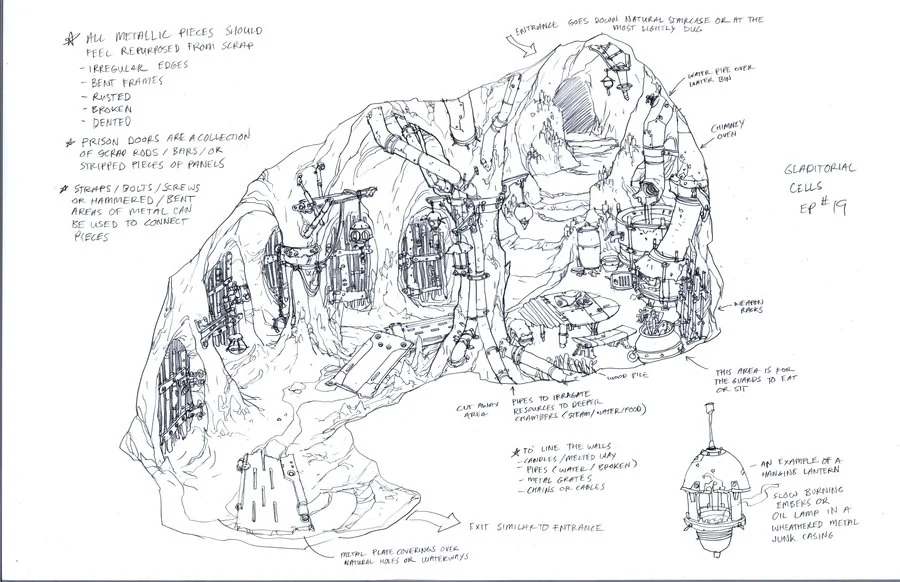 ☆ ALL METALLIC PIECES SHOULD
FEEL REPURPOSED FROM SCRAP
- IRREGULAR EDGES
- BENT FRAMES
- RUSTED
- BROKEN
- DENTED
☆ PRISON DOORS ARE A COLLECTION
OF SCRAP RODS / BARS / OR
STRIPPED PIECES OF PANELS
☆ STRAPS / BOLTS / SCREWS
OR HAMMERED / BENT
AREAS OF METAL CAN
BE USED TO CONNECT
PIECES
ENTRANCE GOES DOWN NATURAL STAIRCASE OR AT THE
MOST LIGHTLY DUG
WATER PIPE OVER
WATER BIN
CHIMNEY
OVEN
GLADITORIAL
CELLS
EP #19
WEAPON
RACKS
THIS AREA IS FOR
THE GUARDS TO EAT
OR SIT
WOOD PILE
CUT AWAY
AREA
PIPES TO IRRAGATE
RESOURCES TO DEEPER
CHAMBERS (STEAM/WATER/FOOD)
☆ TO LINE THE WALLS
- CANDLES / MELTED WAX
- PIPES (WATER / BROKEN)
- METAL GRATES
- CHAINS OR CABLES
- AN EXAMPLE OF A
HANGING LANTERN
SLOW BURNING
EMBERS OR
OIL LAMP IN A
WEATHERED METAL
JUNK CASING
EXIT SIMILAR TO ENTRANCE
METAL PLATE COVERINGS OVER
NATURAL HOLES OR WATERWAYS